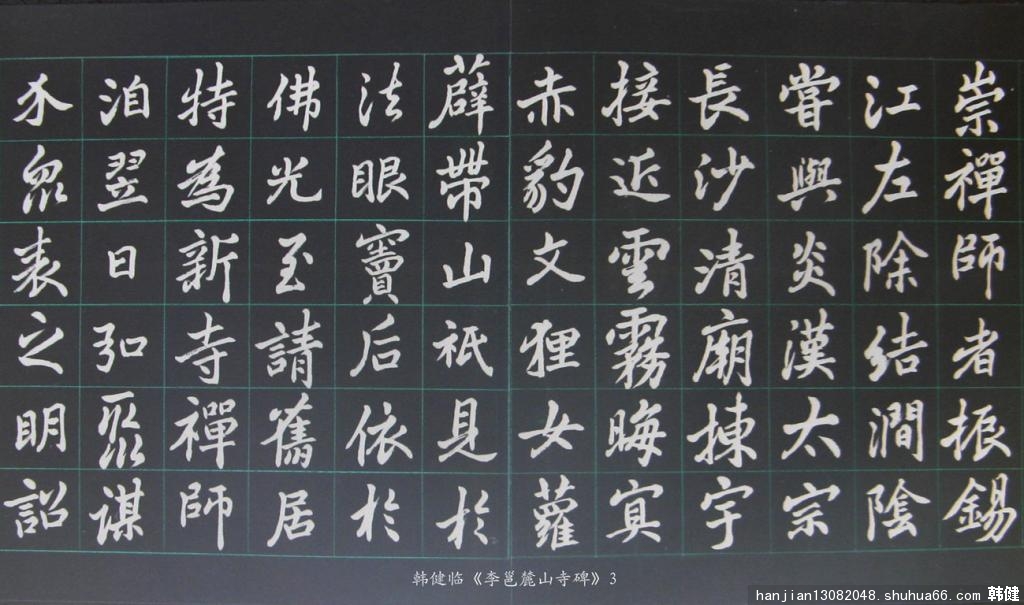 崇禪師者振錫
江左除結澗陰
嘗與炎漢太宗
長沙清廟揀宇
接近雲霧晦㝠
赤豹文狸女蘿
薜帶山祇見於
法眼竇后依於
佛光至請舊居
特為新寺禪師
洎翌日弘聚謀
介衆表之明詔
韩健临《李邕麓山寺碑》3
hanjian13082048.shuhua66.com 韩健